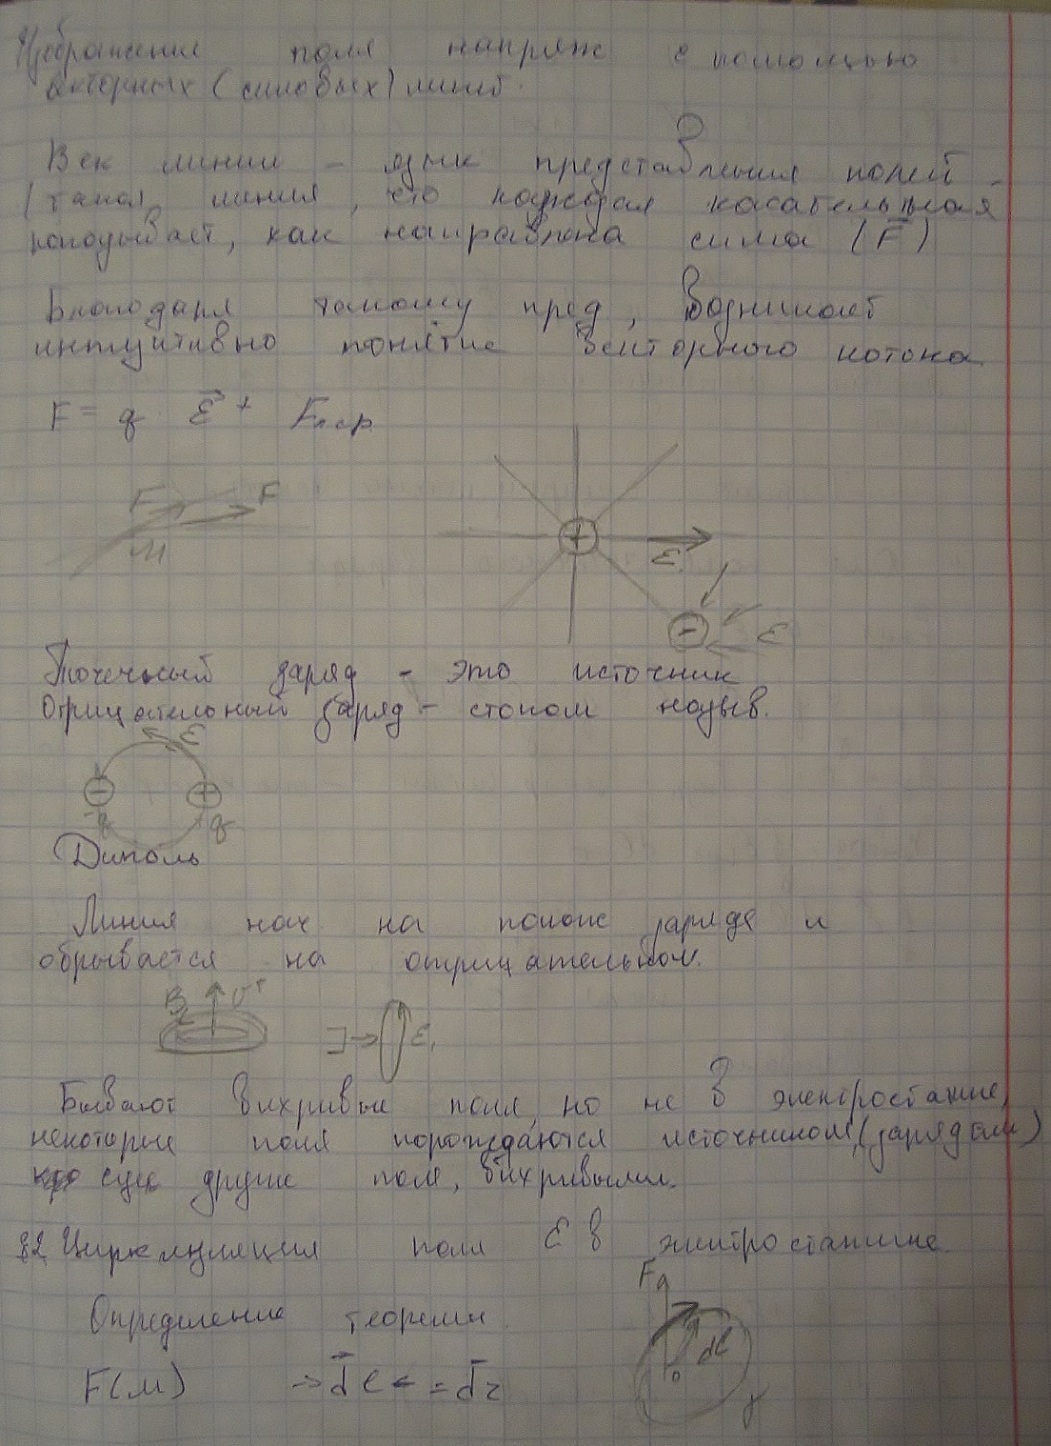 Изображение поля напряж с помощью
векторных (силовых) линий.
Век линии – язык представления полей
(такая линия, что каждая касательная
показывает, как направлена сила (F)
Благодаря такому пред, возникает
интуитивно понятие векторного потока
F = q ε +
F F
M
+
ε
- ε
Точечный заряд – это источник
Отрицательный заряд – стоком назыв.
ε
- +
-q q
Диполь
Линия нач на полож заряде и
обрывается на отрицательном.
B
J → ε
Бывают вихривые поля, но не в электростатике,
некоторые поля порождаются источником (зарядами)
сущ другие поля, вихривыми.
§2 Циркуляция поля ε в электростатике
Определение теоремы
F
dℓ
0
γ
F(M) → dℓ = dr